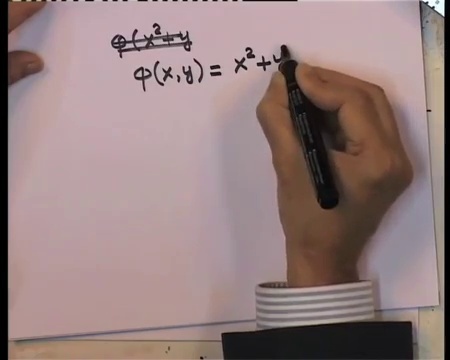 φ(x²+y
φ(x,y) = x²+y